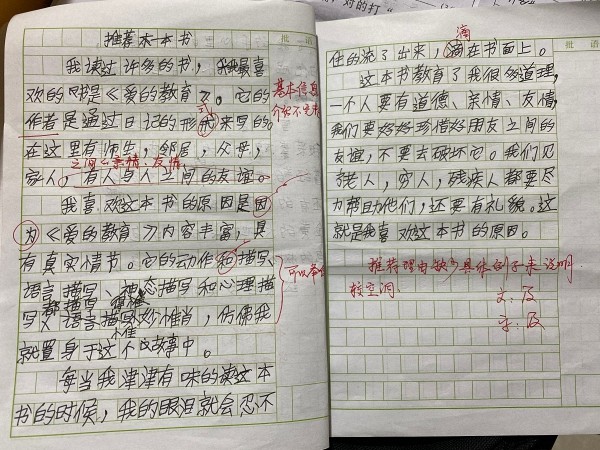 对的打
推荐一本书
我读过许多的书，我最喜
欢的书是《爱的教育》。它的
作者是通过日记的形式来写的。
在这里有师生，邻居，父母，
之间亲情、友情
家人，有人与人之间的友谊。
我喜欢这本书的原因是因
为《爱的教育》内容丰富，具
有真实情节。它的动作和描写、
语言描写、神态描写和心理描
写，语言描写妙惟肖，仿佛我
就置身于这个故事中。
每当我津津有味的读这本
书的时候，我的眼泪就会忍不
批语
基本信息
介绍不完整
滴
住的流了出来，滴在书面上。
这本书教育了我很多道理，
一个人要有道德、亲情、友情，
我们要好好珍惜好朋友之间的
友谊，不要去破坏它。我们见
老人，穷人，残疾人都要尽
力帮助他们，还要有礼貌。这
就是我喜欢这本书的原因。
推荐理由缺少具体例子来说明，
较空洞。
文：及
字：及
批语